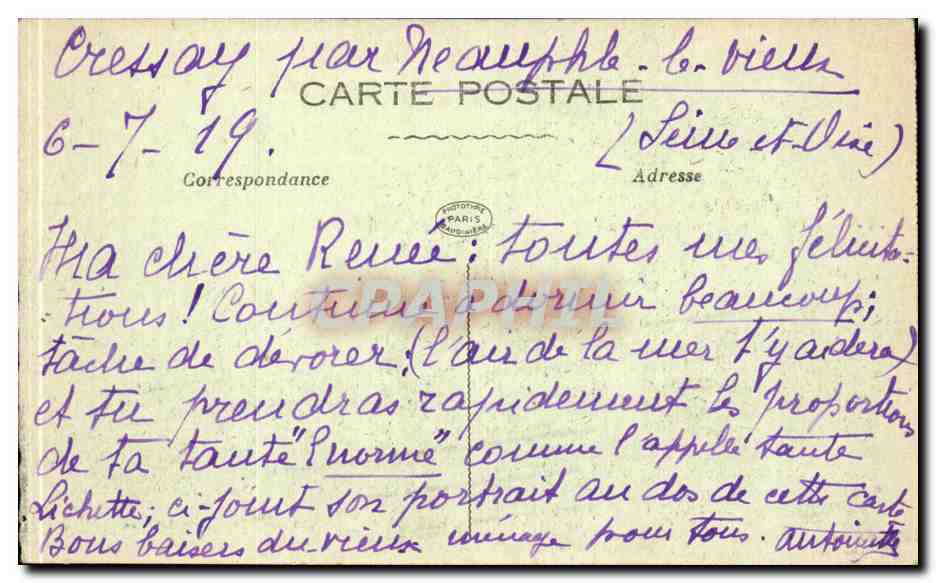 Cressay par Neauphle-le-vieux
CARTE POSTALE
6-7-19. (Seine et-Oise)
Correspondance Adresse
PHOTOTYPIE
PARIS
BAUDINIÈRE
Ma chère Renée: toutes mes félicita-
tions! Continue à dormir beaucoup;
EPAPHIL
tâche de dévorer, (l'air de la mer t'y aidera)
et tu prendras rapidement les proportions
de ta tante "Énorme" comme l'appelle tante
Lichette; ci-joint son portrait au dos de cette carte
Bons baisers du vieux ménage pour tous. Antoinette